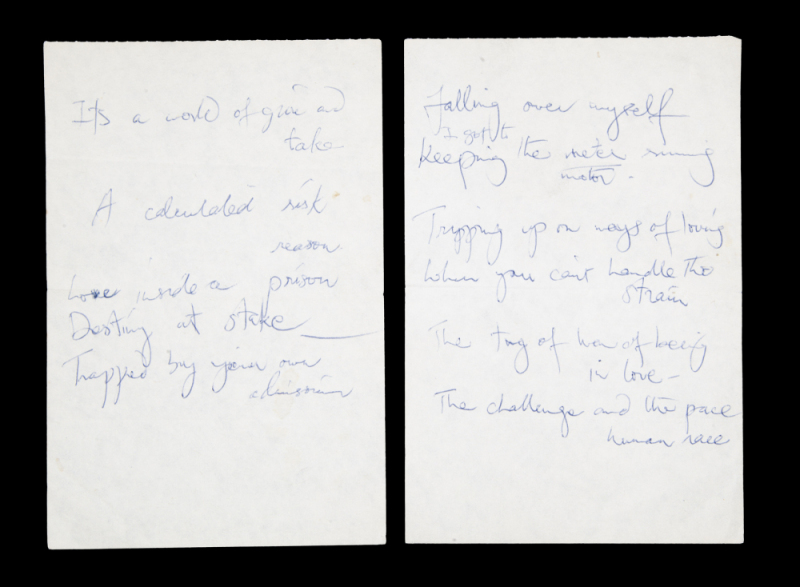 It's a world of give and
take
A calculated risk
reason
Love inside a prison
Destiny at stake
Trapped by your own
admission
Falling over myself
I got to
Keeping the meter running
motor.
Tripping up on ways of loving
When you can't handle the
strain
The tug of war of being
in love -
The challenge and the pace
human race